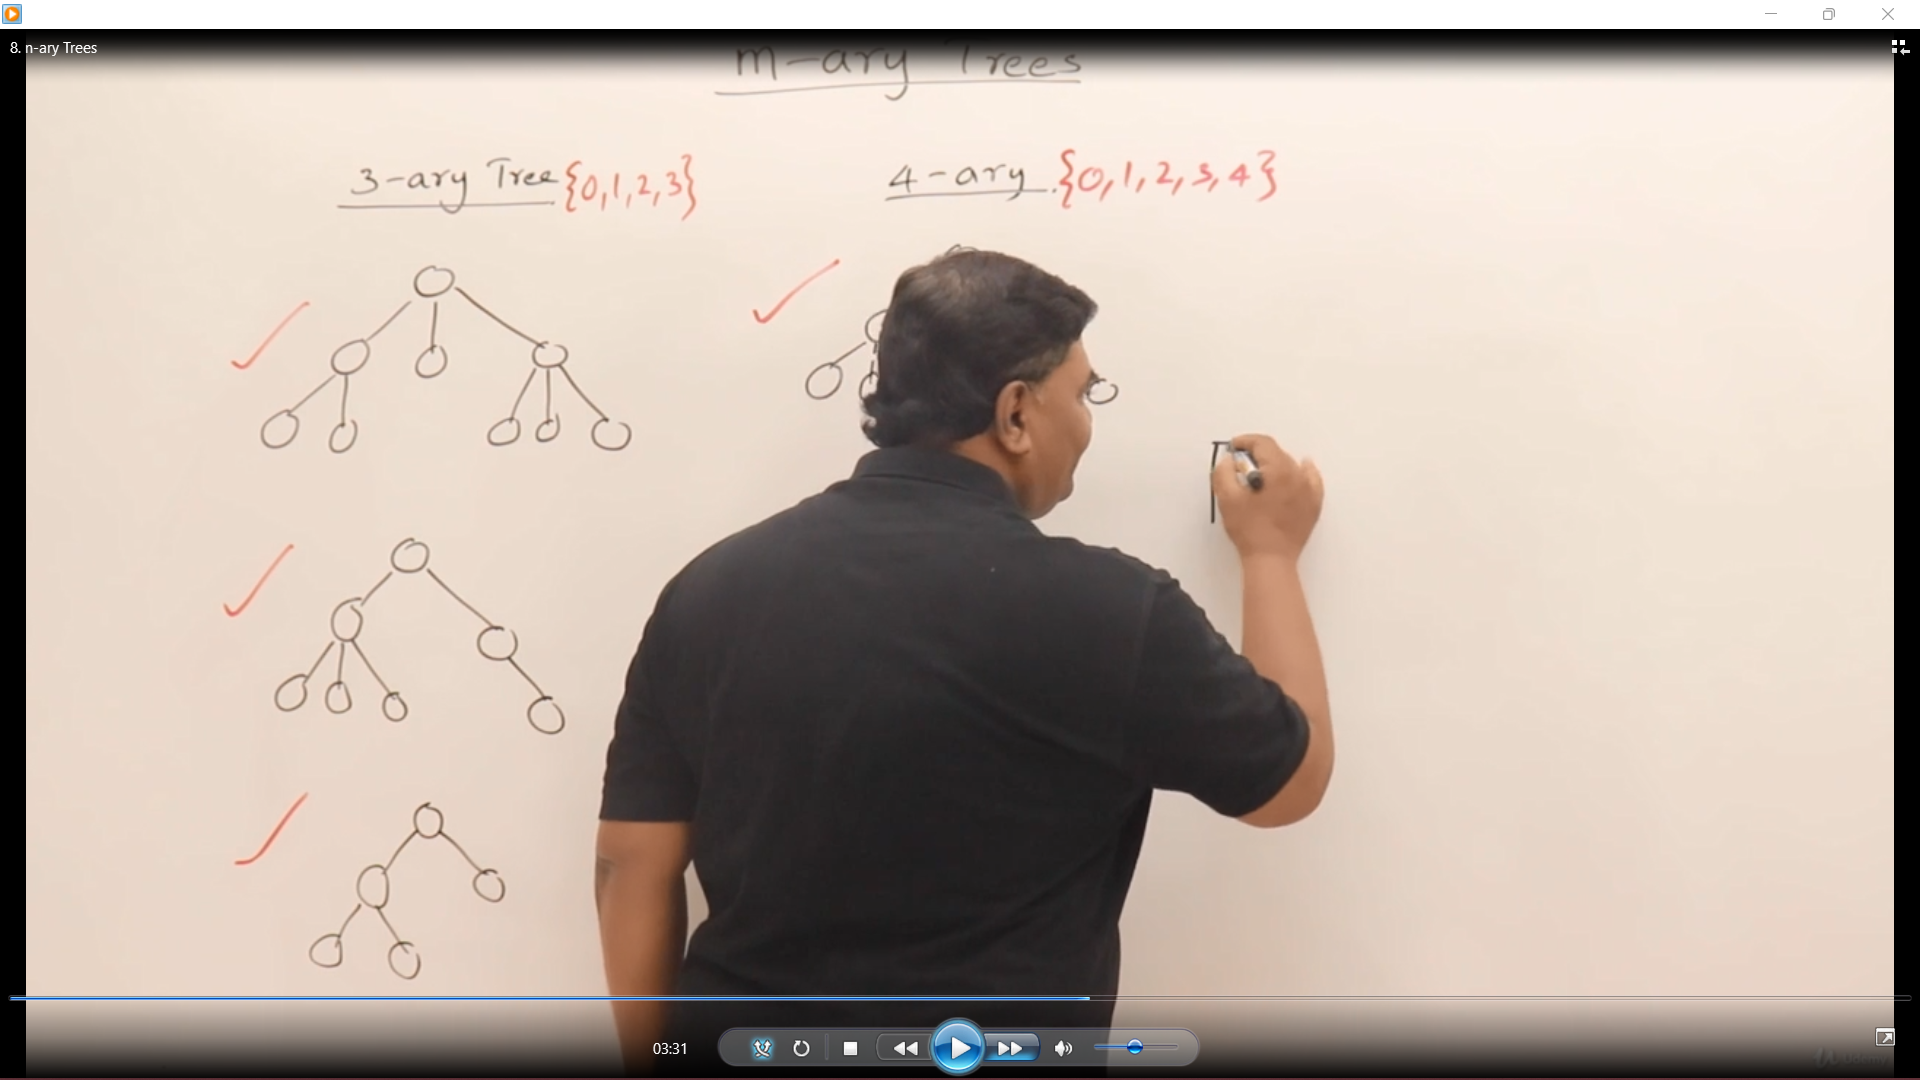 8. n-ary Trees
m-ary Trees
3-ary Tree {0,1,2,3}
4-ary {0,1,2,3,4}
03:31
Udemy